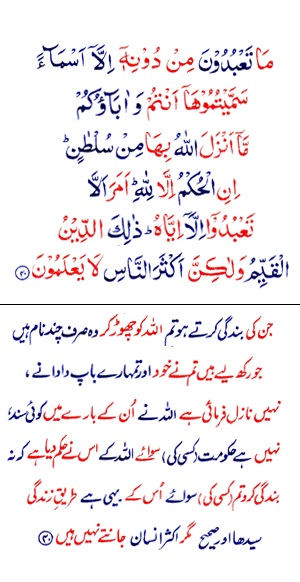 مَا تَعْبُدُوْنَ مِنْ دُوْنِهٖۤ اِلَّاۤ اَسْمَآءً
سَمَّيْتُمُوْهَاۤ اَنْتُمْ وَ اٰبَآؤُكُمْ
مَّاۤ اَنْزَلَ اللّٰهُ بِهَا مِنْ سُلْطٰنٍ ؕ
اِنِ الْحُكْمُ اِلَّا لِلّٰهِ ؕ اَمَرَ اَلَّا
تَعْبُدُوْۤا اِلَّاۤ اِيَّاهُ ؕ ذٰلِكَ الدِّيْنُ
الْقَيِّمُ وَلٰكِنَّ اَكْثَرَ النَّاسِ لَا يَعْلَمُوْنَ ﴿۴۰﴾
جن کی بندگی کرتے ہو تم اللہ کو چھوڑ کر وہ صرف چند نام ہیں
جو رکھ لیے ہیں تم نے خود اور تمہارے باپ دادا نے ،
نہیں نازل فرمائی ہے اللہ نے اُن کے بارے میں کوئی سند،
نہیں ہے حکومت (کسی کی) سوائے اللہ کے اس نے حکم دیا ہے کہ نہ
بندگی کرو تم (کسی کی) سوائے اُس کے یہی ہے طریقِ زندگی
سیدھا اور صحیح مگر اکثر انسان جانتے نہیں ہیں ﴿۴۰﴾